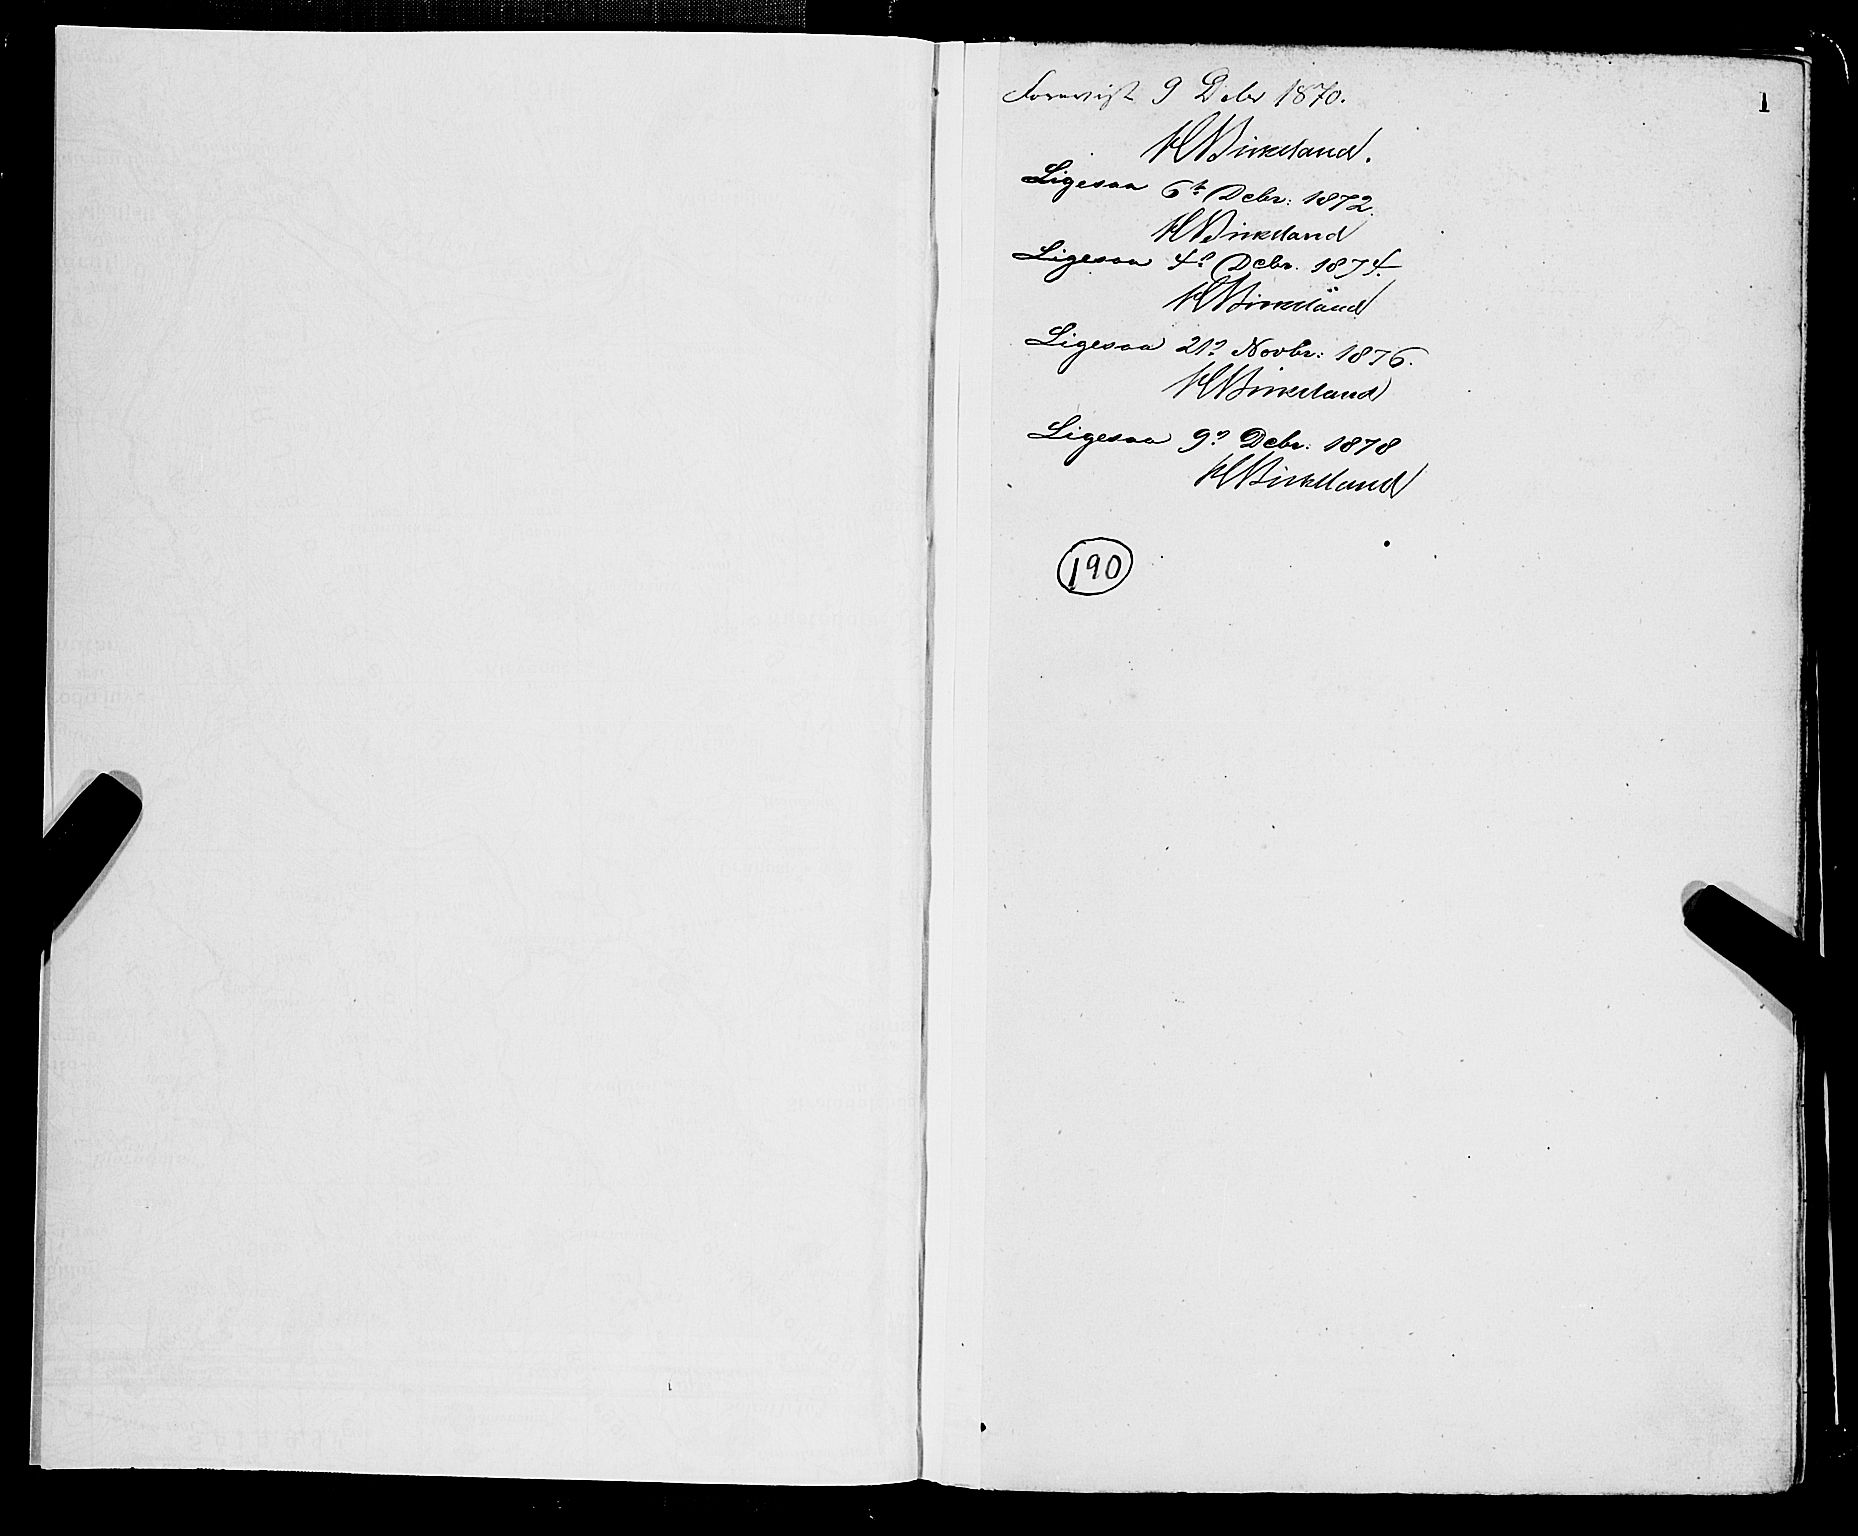 1
Forevist 9 Debr 1870.
HBirkeland.
Ligesaa 6te Debr: 1872.
HBirkeland
Ligesaa 4de Debr. 1874.
HBirkeland
Ligesaa 21de Novbr: 1876.
HBirkeland
Ligesaa 9de Debr: 1878
HBirkeland
190